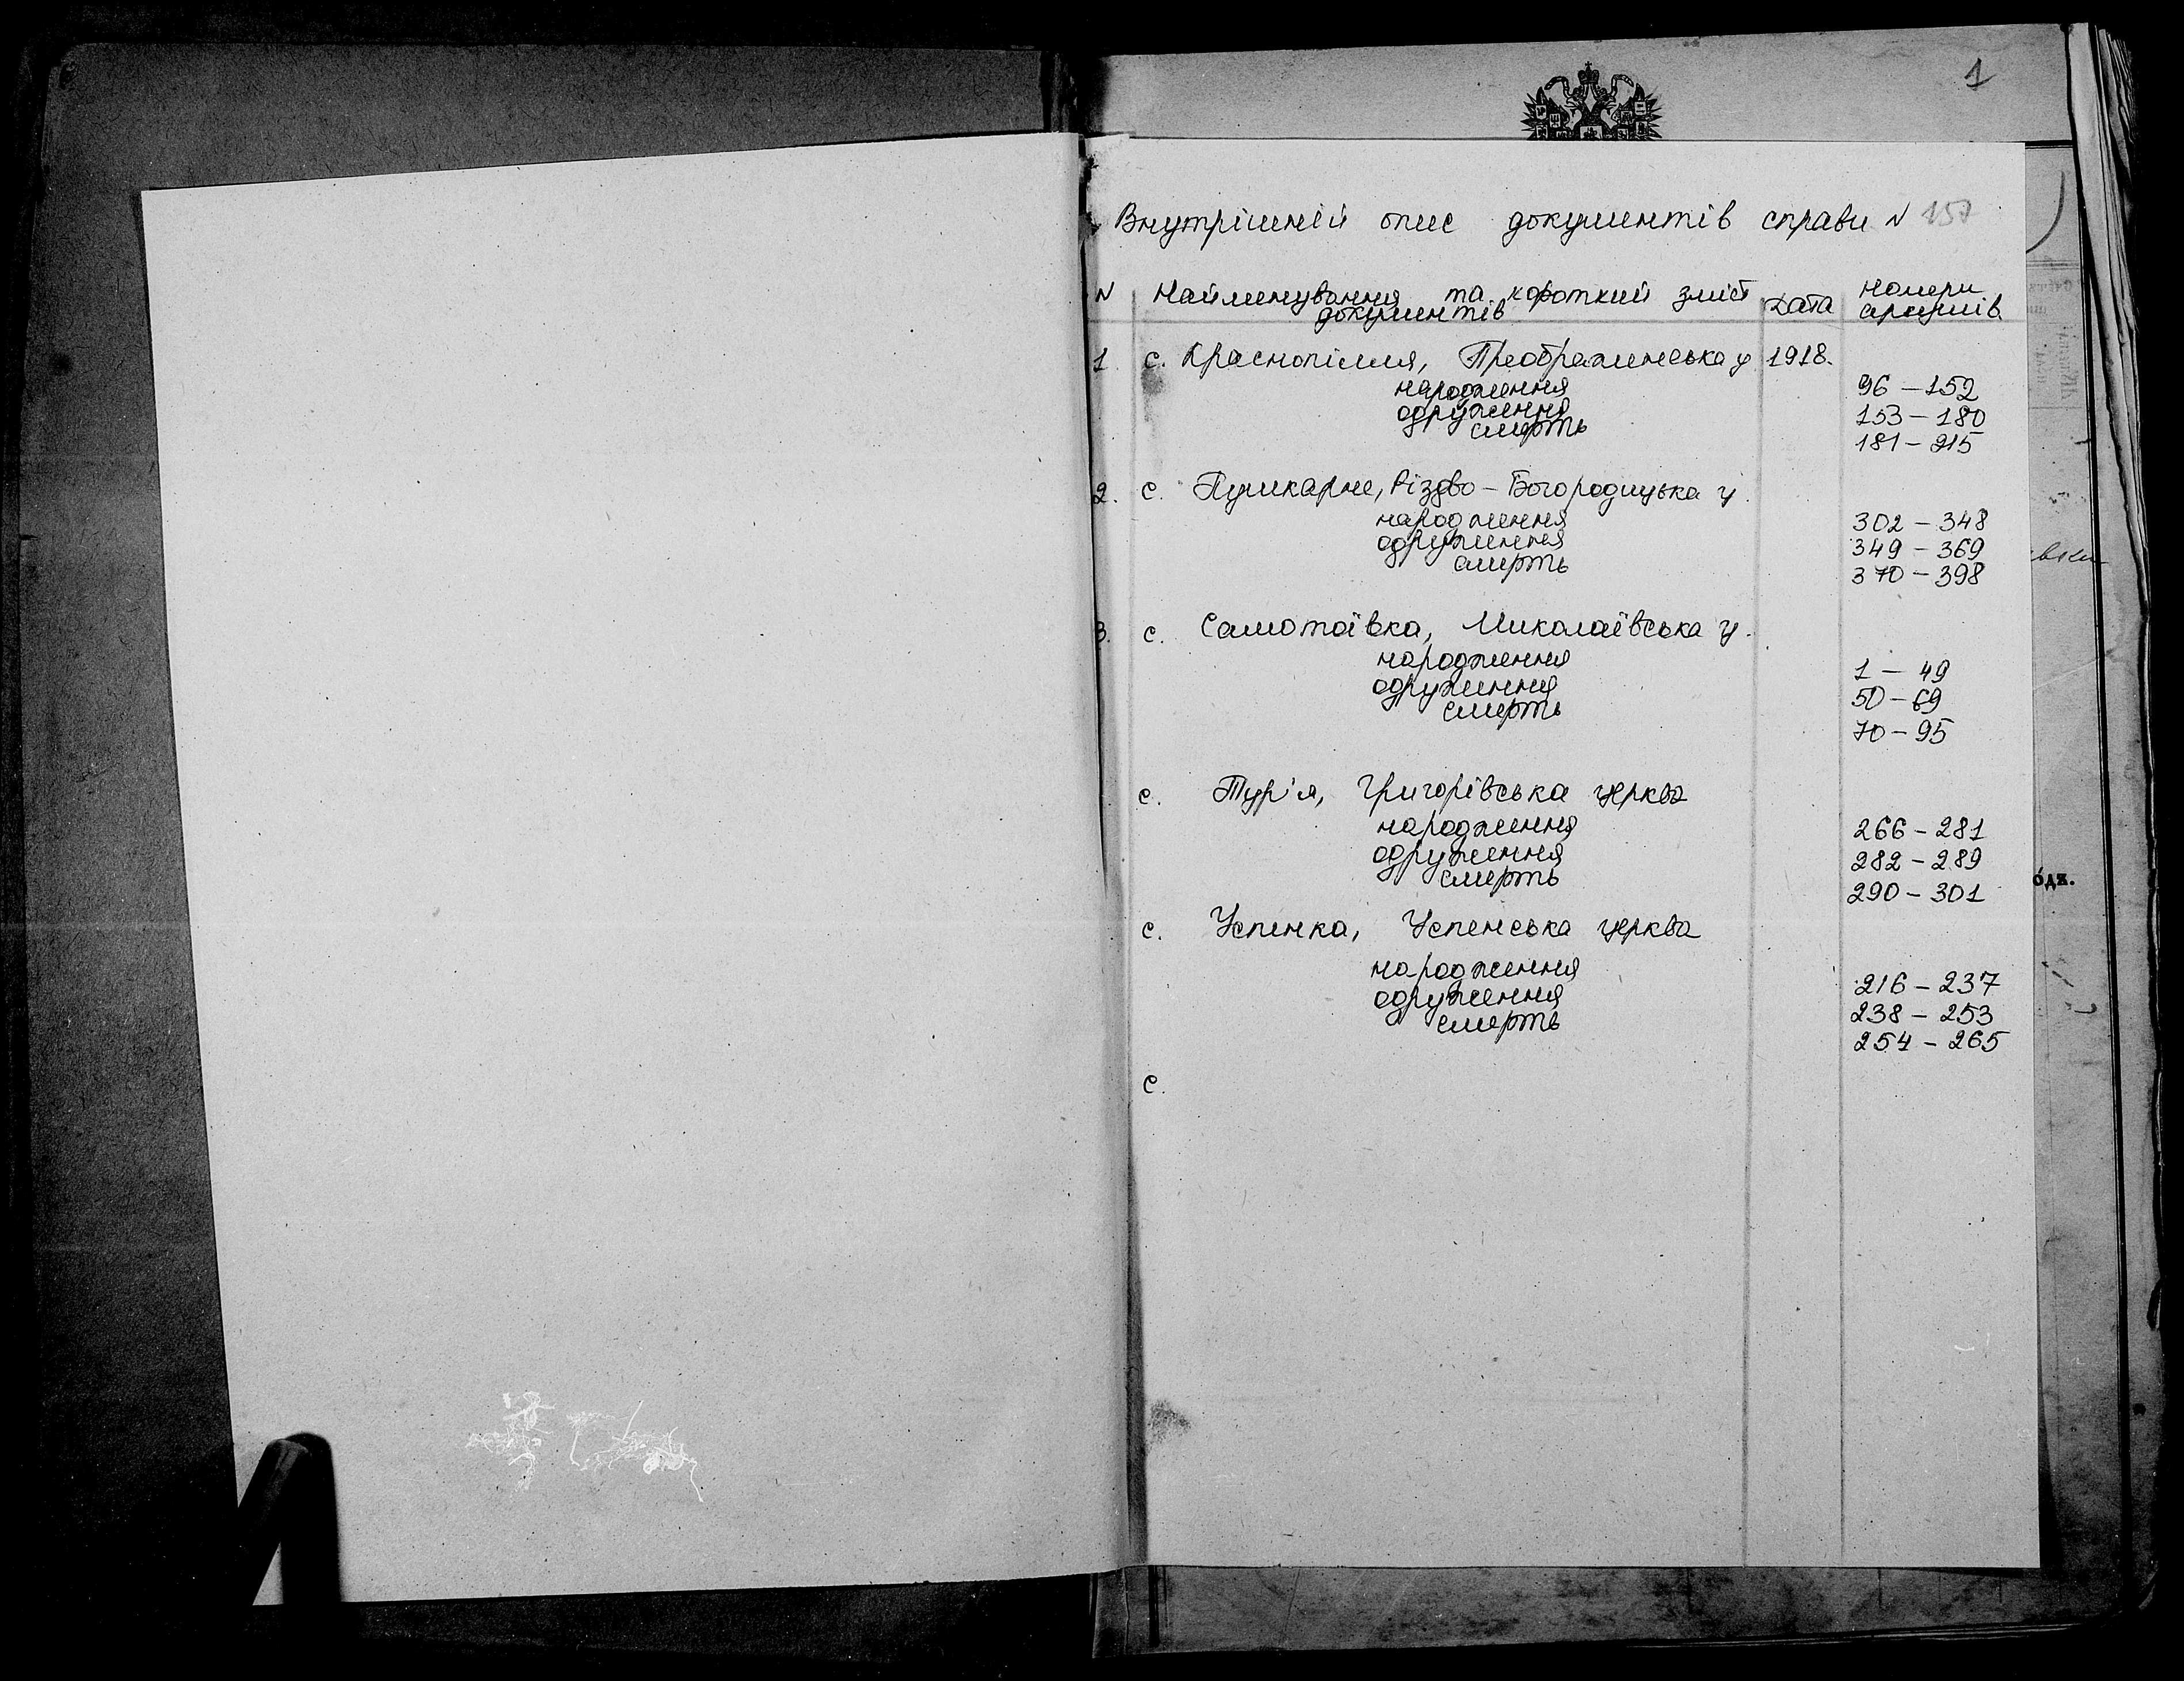 1
Внутрішній опис документів справи N 157
N Найменування та короткий зміст документів Дата Номери аркушів
1 с. Краснопілля, Преображенська ц 1918.
народження 96 – 152
одруження 153 – 180
смерть 181 – 215
2. с. Пушкарне, Різдво – Богородицька ц.
народження 302 – 348
одруження 349 – 369
смерть 370 – 398
3. с. Самотоївка, Миколаївська ц.
народження 1 – 49
одруження 50 – 69
смерть 70 – 95
с. Тур'я, Григорівська церква
народження 266 – 281
одруження 282 – 289
смерть 290 – 301
одх.
с. Успенка, Успенська церква
народження 216 – 237
одруження 238 – 253
смерть 254 – 265
с.